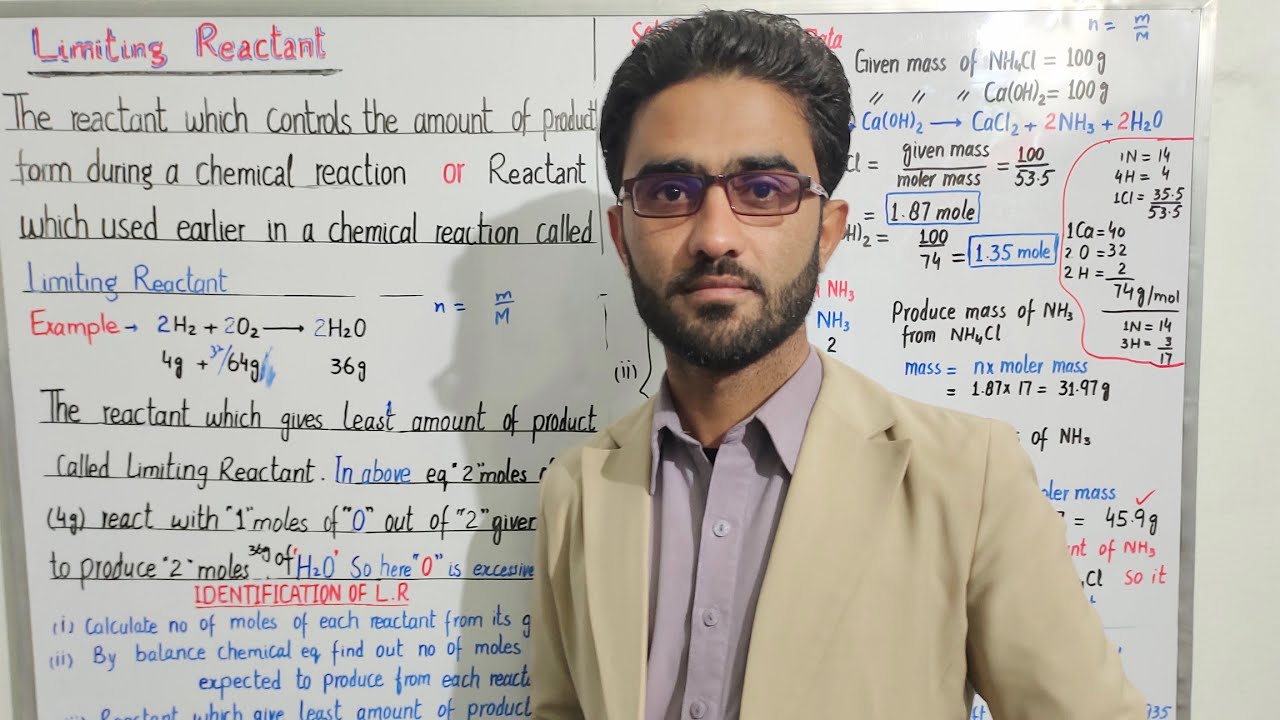 Limiting Reactant
The reactant which controls the amount of product
form during a chemical reaction or Reactant
which used earlier in a chemical reaction called
Limiting Reactant
n = m/M
Example → 2H₂ + 2O₂ ⟶ 2H₂O
4g + 32/64g 36g
The reactant which gives least amount of product
Called Limiting Reactant. In above eq "2" moles
(4g) react with "1" moles of "O" out of "2" given
to produce "2" moles 36g of "H₂O" So here "O" is excessive
IDENTIFICATION OF L.R
(i) Calculate no of moles of each reactant from its g
(ii) By balance chemical eq find out no of moles
expected to produce from each react
Reactant which give least amount of product
n = m/M
Data
Given mass of NH₄Cl = 100g
〃 〃 〃 Ca(OH)₂ = 100g
Ca(OH)₂ ⟶ CaCl₂ + 2NH₃ + 2H₂O
Cl = given mass/moler mass = 100/53.5
= 1.87 mole
H)₂ = 100/74 = 1.35 mole
1N = 14
4H = 4
1Cl = 35.5
53.5
1Ca = 40
2 O = 32
2 H = 2
74g/mol
1N = 14
3H = 3
17
NH₃
NH₃
2
(ii)
Produce mass of NH₃
from NH₄Cl
mass = n x moler mass
= 1.87 x 17 = 31.97g
of NH₃
moler mass
= 45.9g ✓
of NH₃
Cl so it